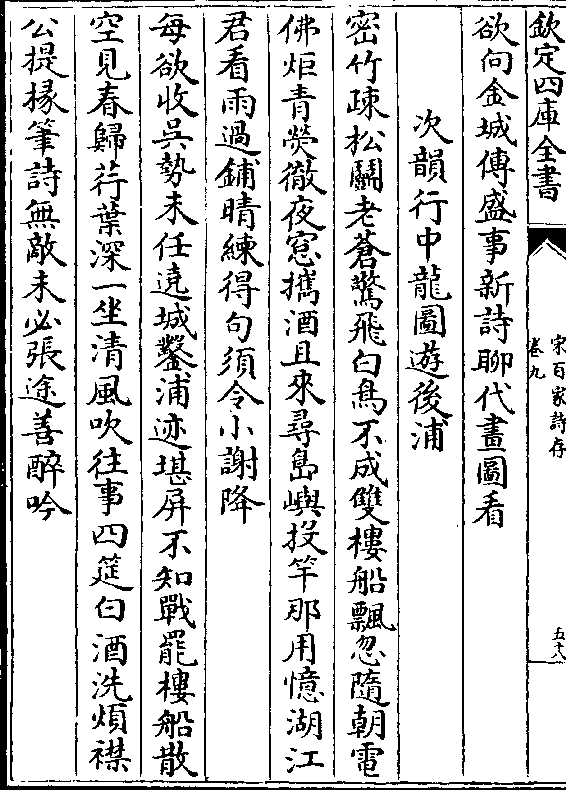 欽定四庫全書
宋百家詩存
卷九
五六
欲向金城傳盛事新詩聊代畫圖看
次韻行中龍圖遊後浦
密竹疎松鬭老蒼驚飛白鳥不成雙樓船飄忽隨朝電
佛炬青熒徹夜窓攜酒且來尋島嶼投竿那用憶湖江
君看雨過鋪晴練得句須令小謝降
每欲收吳勢未任遶城鑿浦迹堪屏不知戰罷樓船散
空見春歸荇葉深一坐清風吹往事四筵白酒洗煩襟
公提掾筆詩無敵未必張途善醉吟